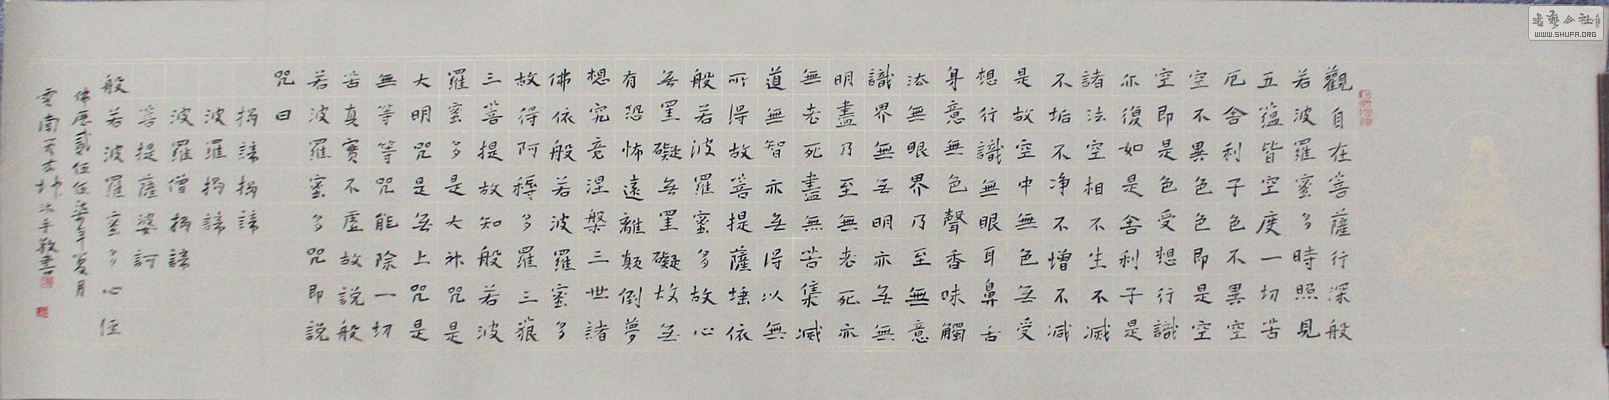 觀自在菩薩行深般
若波羅蜜多時照見
五蘊皆空度一切苦
厄舍利子色不異空
空不異色色即是空
空即是色受想行識
亦復如是舍利子是
諸法空相不生不滅
不垢不淨不增不減
是故空中無色無受
想行識無眼耳鼻舌
身意無色聲香味觸
法無眼界乃至無意
識界無無明亦無無
明盡乃至無老死亦
無老死盡無苦集滅
道無智亦無得以無
所得故菩提薩埵依
般若波羅蜜多故心
無罣礙無罣礙故無
有恐怖遠離顛倒夢
想究竟涅槃三世諸
佛依般若波羅蜜多
故得阿耨多羅三藐
三菩提故知般若波
羅蜜多是大神咒是
大明咒是無上咒是
無等等咒能除一切
苦真實不虛故說般
若波羅蜜多咒即說
咒曰
揭諦揭諦
波羅揭諦
波羅僧揭諦
菩提薩婆訶
般若波羅蜜多心經
佛歷貳伍伍柒年夏月
雲南敬書
书艺公社
WWW.SHUFA.ORG